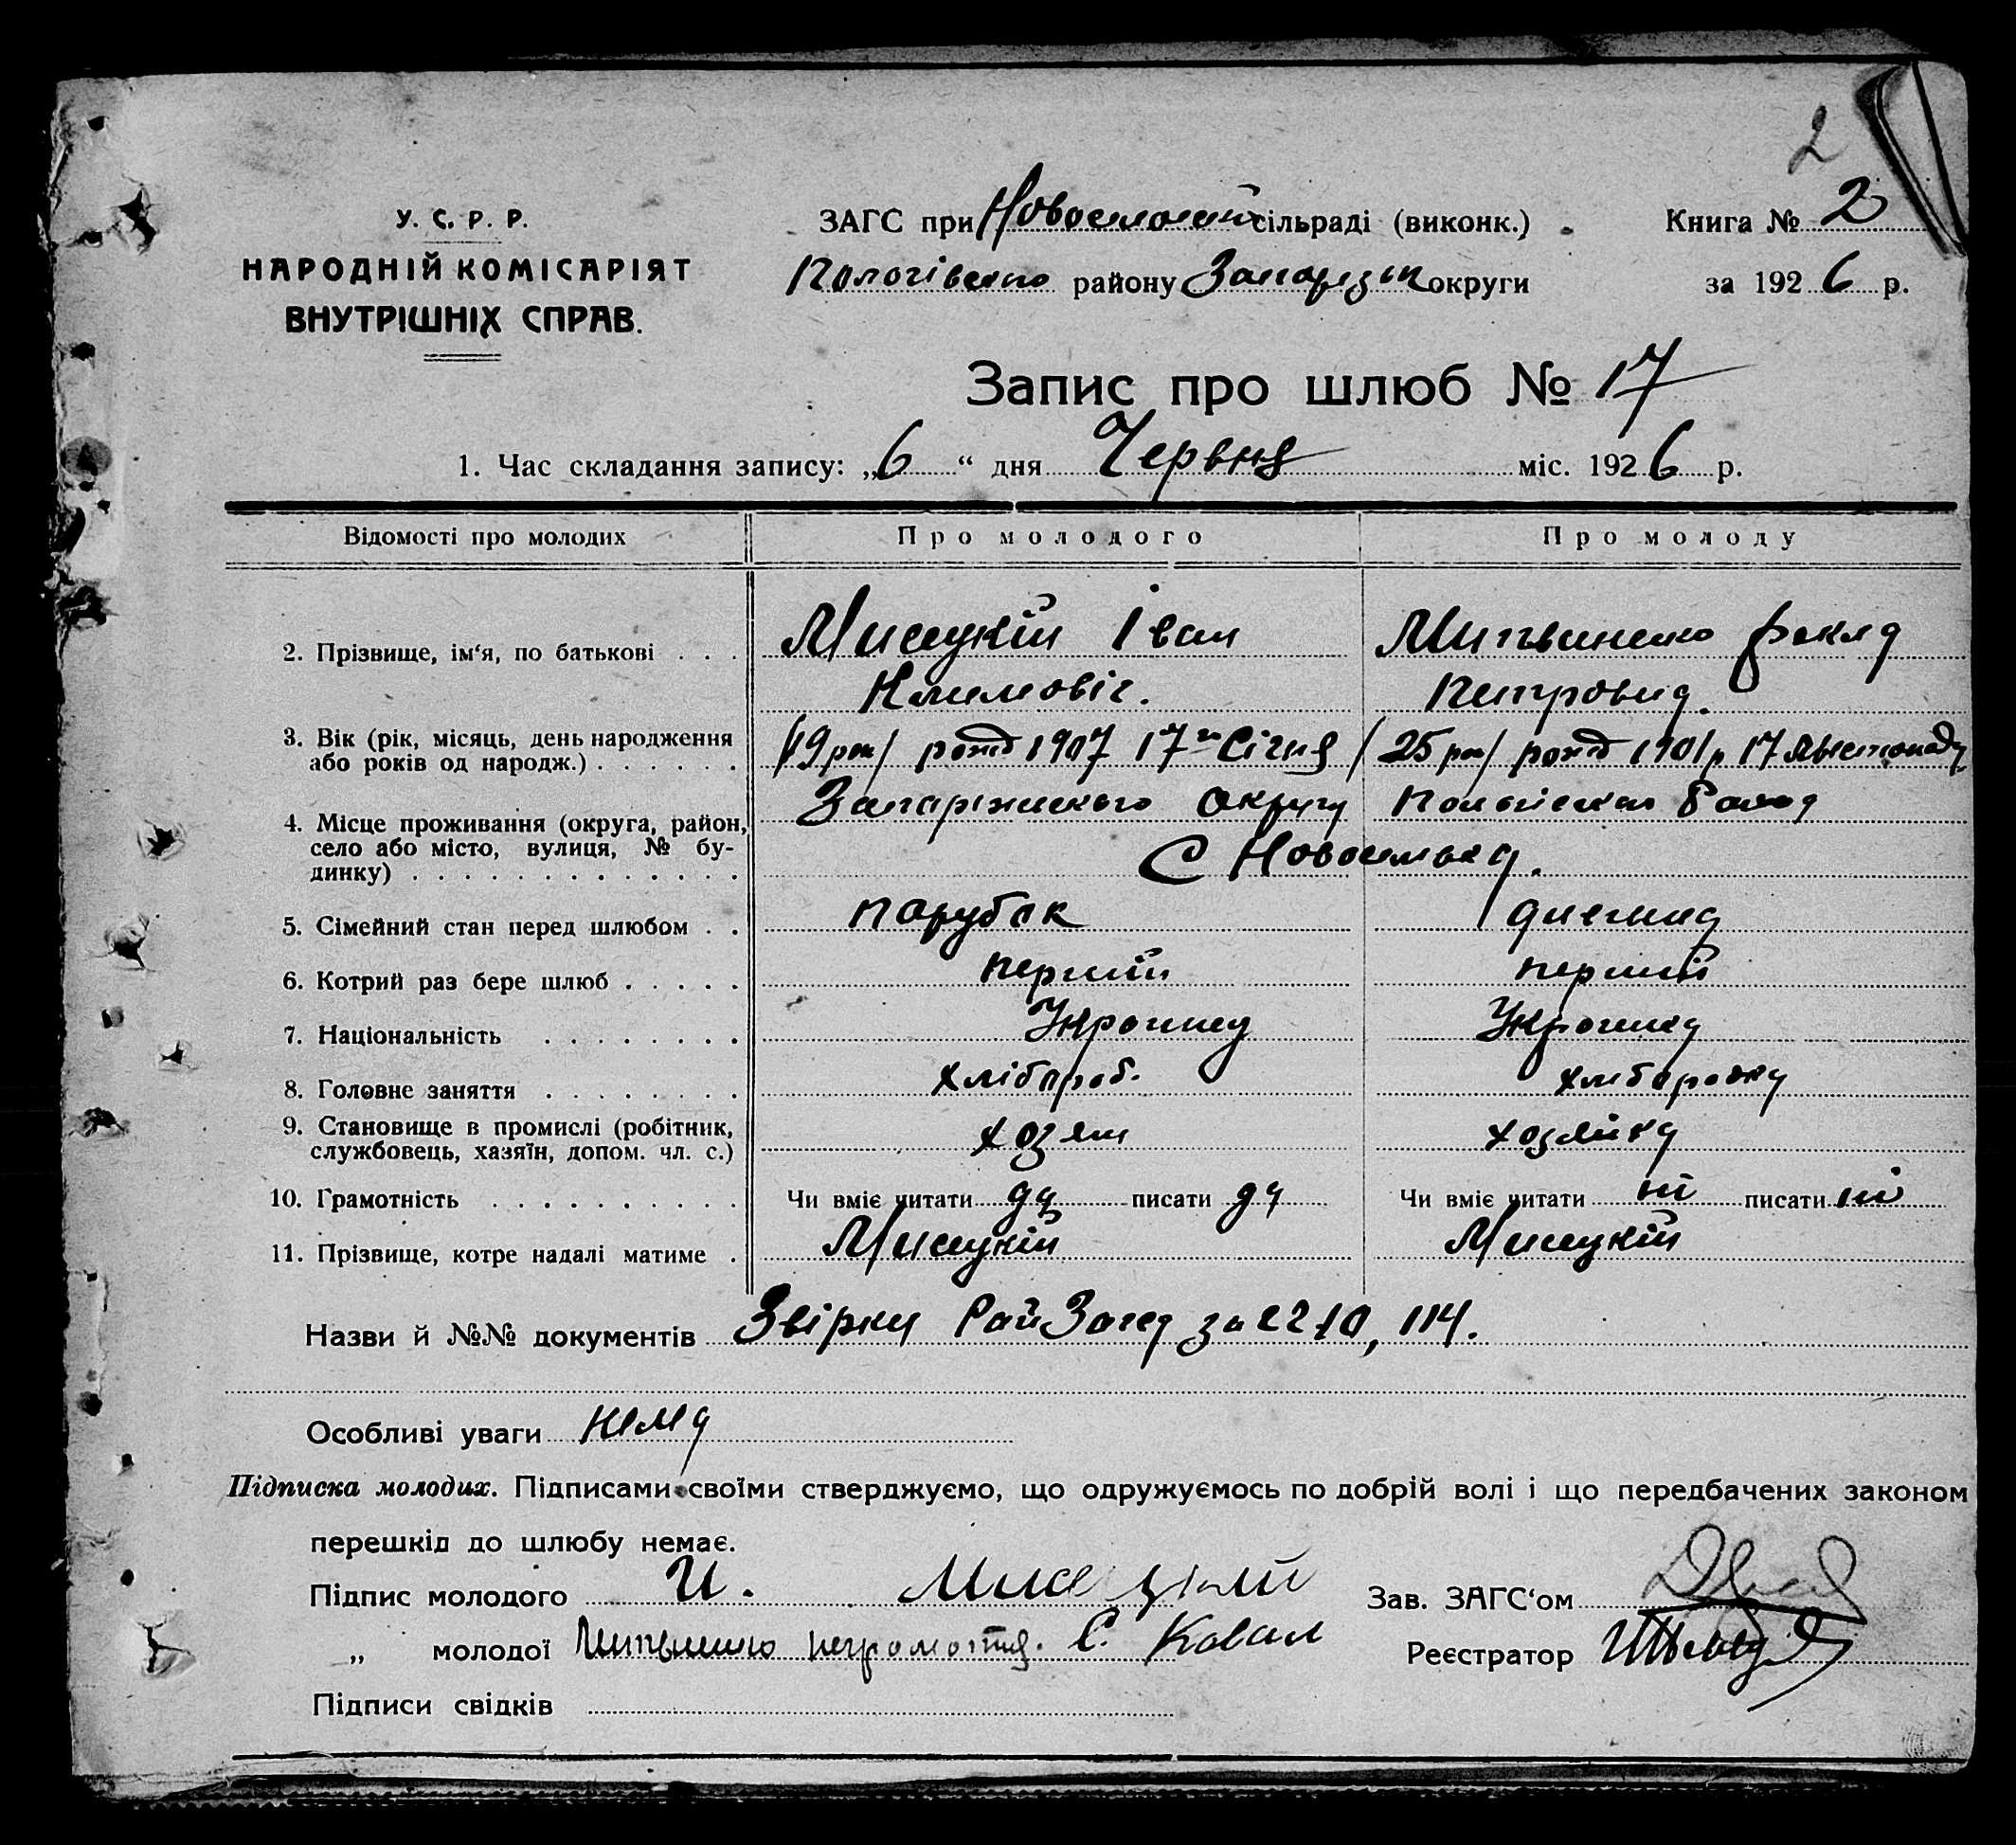 2
У. С. Р. Р.
НАРОДНІЙ КОМІСАРІЯТ
ВНУТРІШНІХ СПРАВ.
ЗАГС при сільраді (виконк.)
Пологівсько району Запоріз округи
Книга № 2
за 1926 р.
Запис про шлюб № 17
1. Час складання запису: „6“ дня Червня міс. 1926 р.
Відомості про молодих
Про молодого
Про молоду
2. Прізвище, ім‘я, по батькові . . .
Мисецкій Іван
Климовіч.
Литвиненко Фекла
Петровна.
3. Вік (рік, місяць, день народження
або років од народж.) . . . . . .
19 рок/ рожд 1907 17го Січня
/25 рок/ рожд 1901 р 17 Листопада
4. Місце проживання (округа, район,
село або місто, вулиця, № бу-
динку) . . . . . . . . . . . . . .
Запоріжского Округу
С Новоселька.
5. Сімейний стан перед шлюбом . .
парубок
дівчина
6. Котрий раз бере шлюб . . . . .
перший
перший
7. Національність . . . . . . . .
Українец
Українка
8. Головне заняття . . . . . . . .
хлібороб.
хліборобка
9. Становище в промислі (робітник,
службовець, хазяїн, допом. чл. с.)
хозяин
хозяйка
10. Грамотність . . . . . . . . . .
Чи вміє читати да писати да
Чи вміє читати ні писати ні
11. Прізвище, котре надалі матиме .
Мисецкій
Мисецкій
Назви й №№ документів Звірки РайЗагса за 114.
Особливі уваги нема
Підписка молодих. Підписами своїми стверджуємо, що одружуємось по добрій волі і що передбачених законом
перешкід до шлюбу немає.
Підпис молодого И. Мисецкий
„ молодої Литвиненко неграмотна. С. Ковал
Підписи свідків
Зав. ЗАГС‘ом
Реєстратор